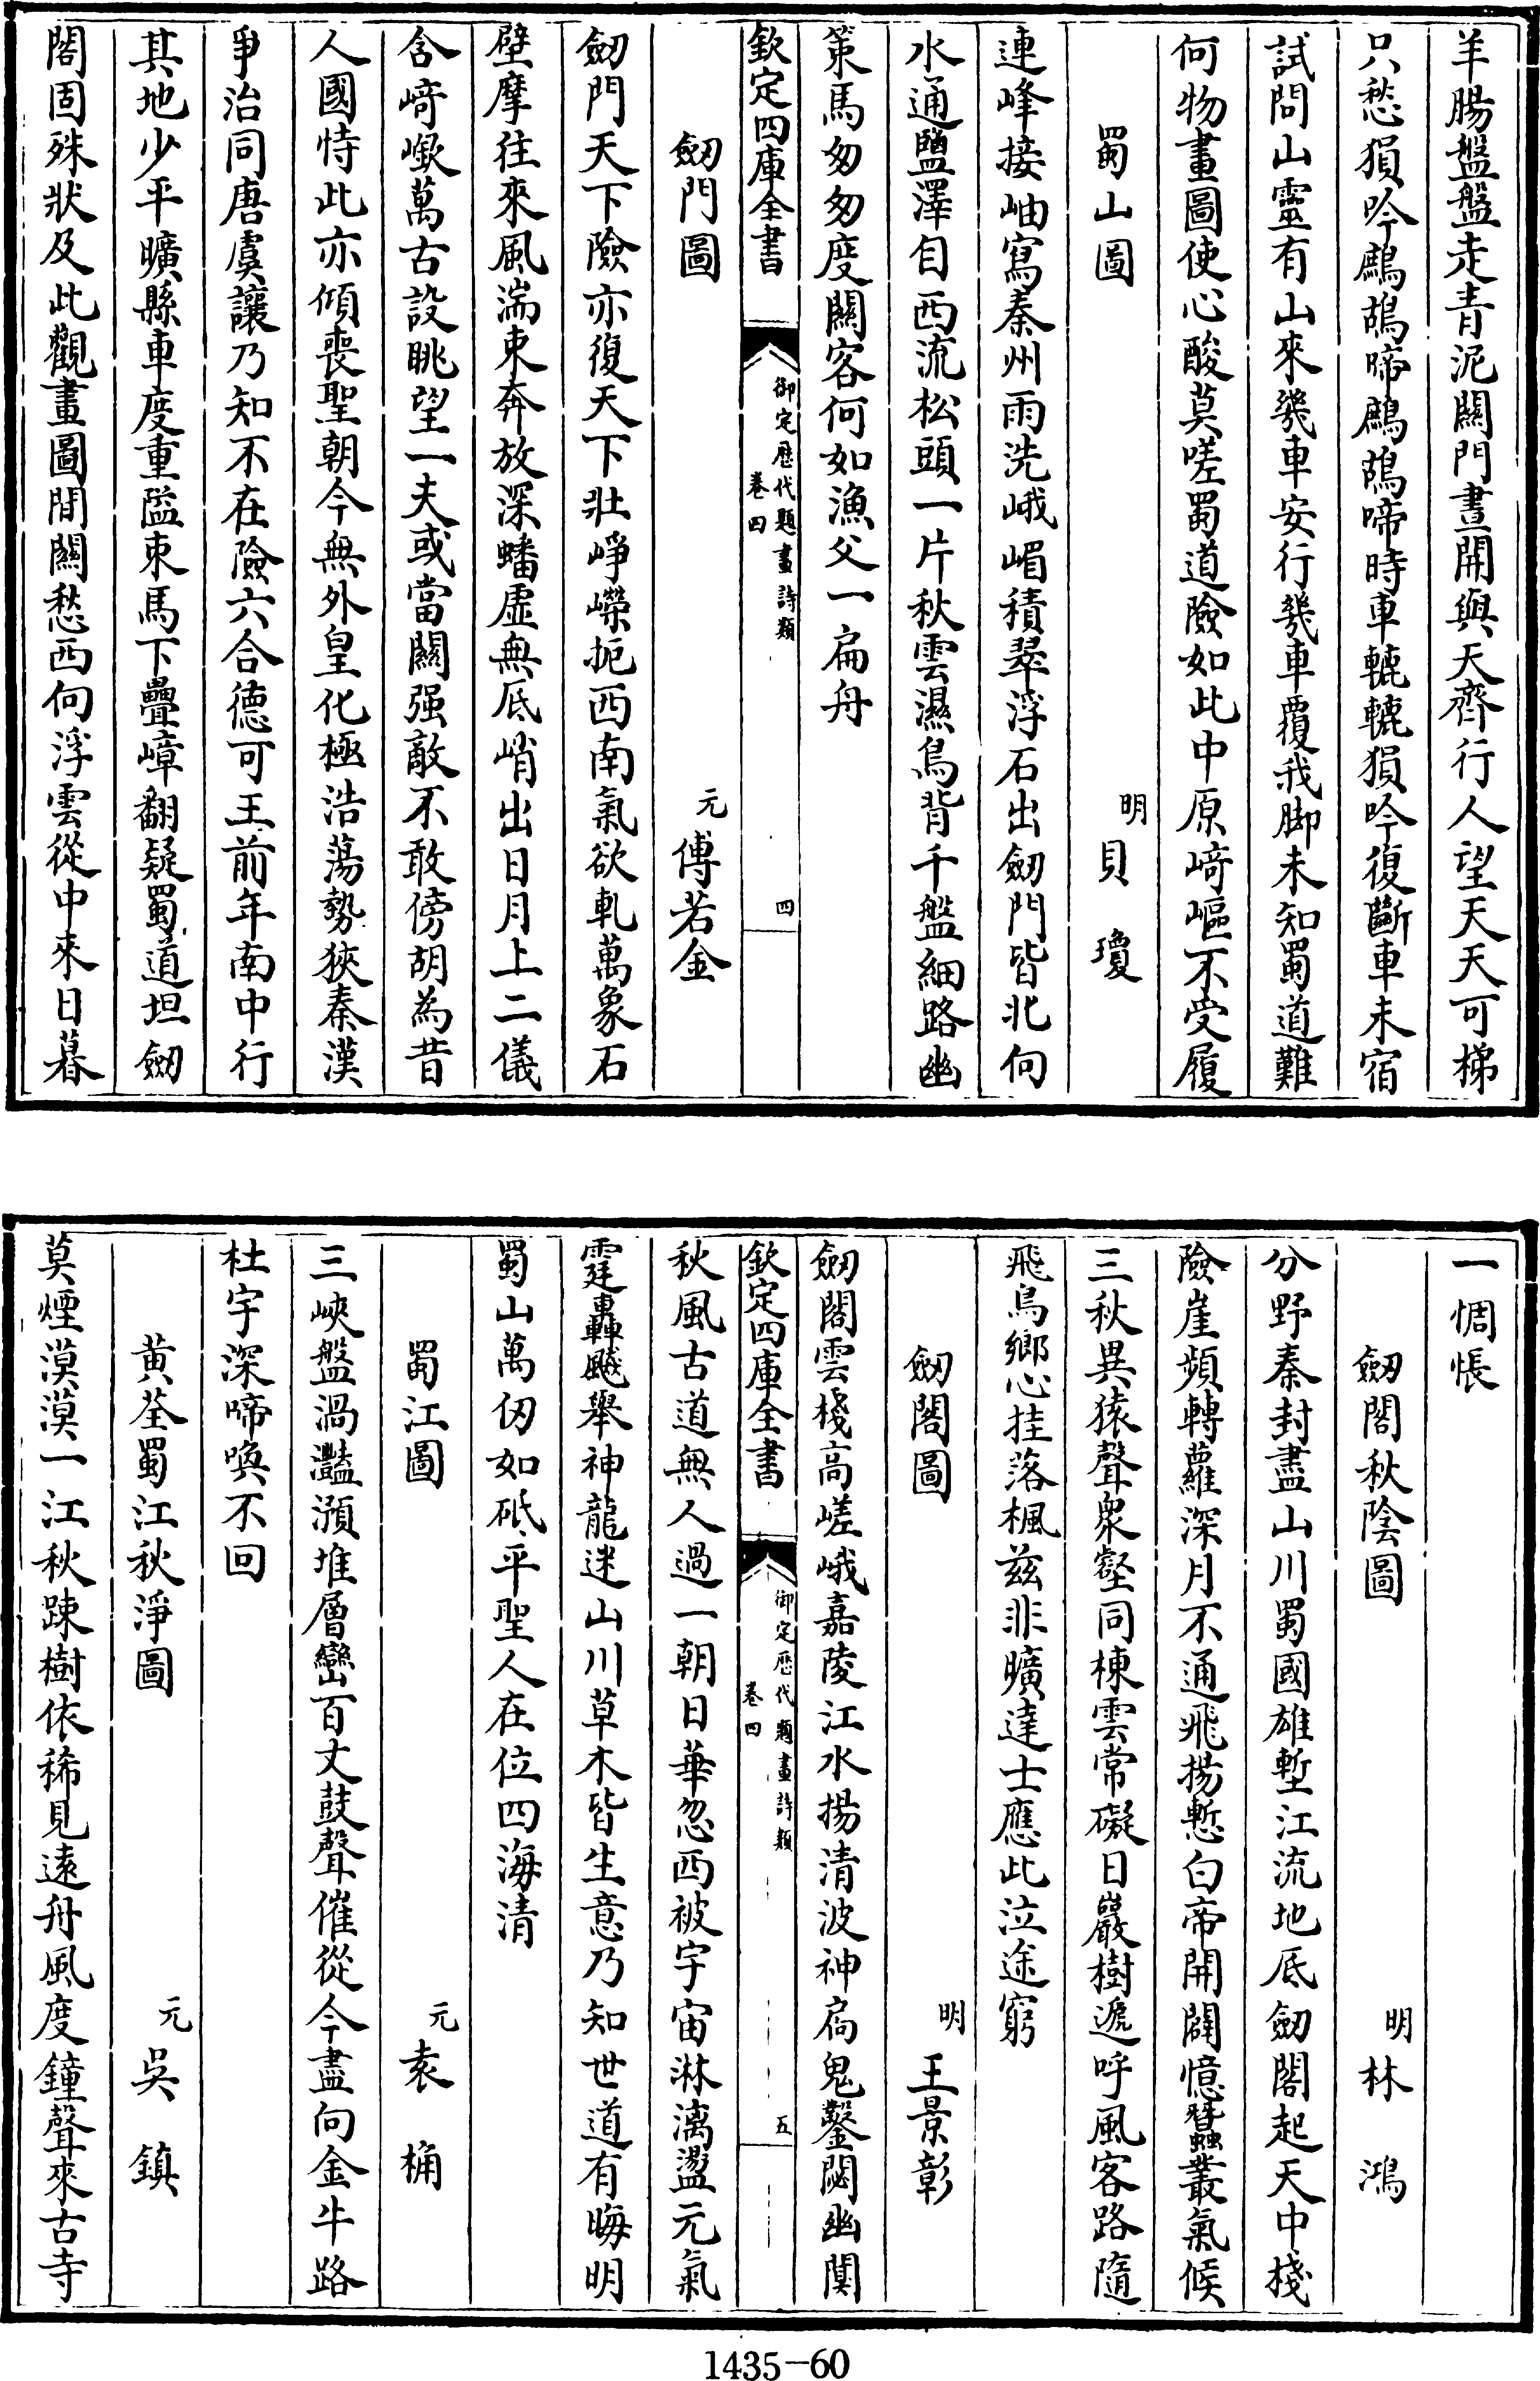 羊腸盤盤走青泥關門晝開與天齊行人望天天可梯
只愁猨吟鷓鴣啼鷓鴣啼時車轆轆猨吟復斷車未宿
試問山靈有山來幾車安行幾車覆我脚未知蜀道難
何物畫圖使心酸莫嗟蜀道險如此中原崎嶇不受履
蜀山圖 明 貝瓊
連峰接岫寫秦州雨洗峨嵋積翠浮石出劒門皆北向
水通鹽澤自西流松頭一片秋雲濕鳥背千盤細路幽
策馬匆匆度關客何如漁父一扁舟
欽定四庫全書 御定歷代題畫詩類 卷四 四
劒門圖 元 傅若金
劒門天下險亦復天下壯崢嶸扼西南氣欲軋萬象石
壁摩往來風湍東奔放深蟠虛無底峭出日月上二儀
含崎嶔萬古設眺望一夫或當關强敵不敢傍胡為昔
人國恃此亦傾喪聖朝今無外皇化極浩蕩勢狹秦漢
爭治同唐虞讓乃知不在險六合德可王前年南中行
其地少平曠縣車度重隘束馬下疊嶂翻疑蜀道坦劒
閣固殊狀及此觀畫圖間關愁西向浮雲從中來日暮
一惆悵
劒閣秋陰圖 明 林鴻
分野秦封盡山川蜀國雄塹江流地底劒閣起天中棧
險崖頻轉蘿深月不通飛揚慙白帝開闢憶蠶叢氣候
三秋異猿聲衆壑同棟雲常礙日巖樹遞呼風客路隨
飛鳥鄉心挂落楓兹非曠達士應此泣途窮
劒閣圖 明 王景彰
劒閣雲棧高嵯峨嘉陵江水揚清波神扃鬼鑿閟幽闃
欽定四庫全書 御定歷代題畫詩類 卷四 五
秋風古道無人過一朝日華忽西被宇宙淋漓盪元氣
霆轟飈舉神龍迷山川草木皆生意乃知世道有晦明
蜀山萬仞如砥平聖人在位四海清
蜀江圖 元 袁桷
三峽盤渦灩澦堆層巒百丈鼓聲催從今盡向金牛路
杜宇深啼喚不回
黃荃蜀江秋淨圖 元 吳鎮
莫煙漠漠一江秋踈樹依稀見遠舟風度鐘聲來古寺
1435-60